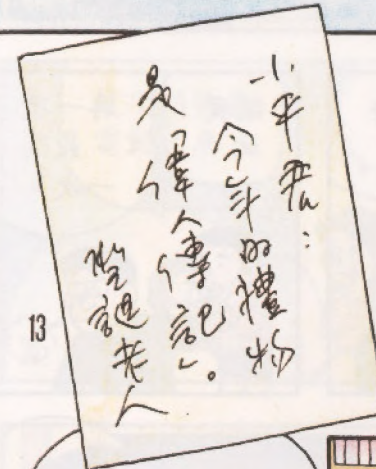 小平君：
今年的禮物
是「偉人傳記」。
聖誕老人
13